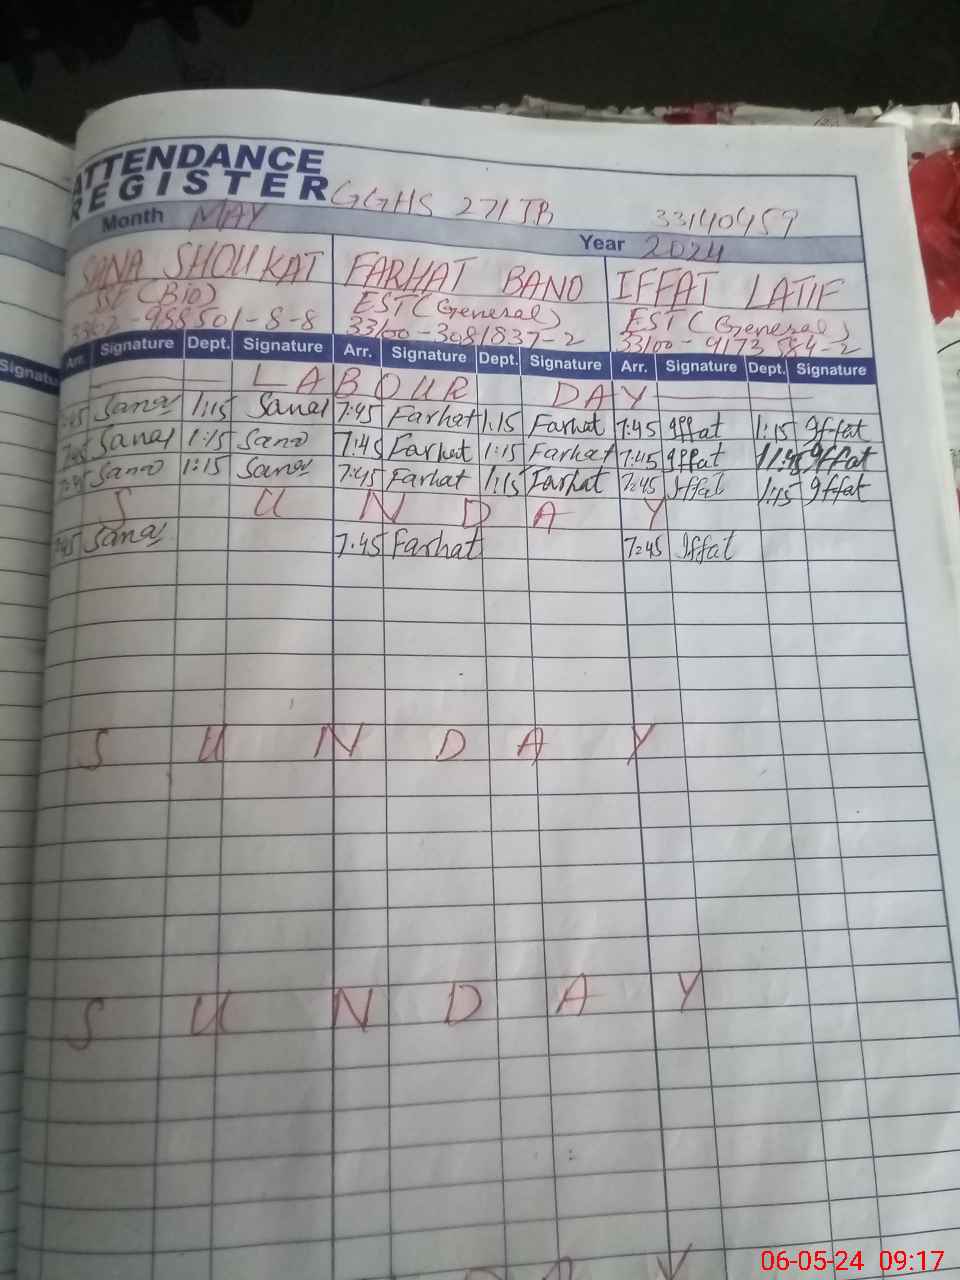 ATTENDANCE
REGISTER GGHS 271 TB 33140459
Month MAY Year 2024
SANA SHOUKAT FARHAT BANO IFFAT LATIF
SSE (Bio) EST (General) EST (General)
33100-3081837-2 33100-9173584-2
Signatu Arr. Signature Dept. Signature Arr. Signature Dept. Signature Arr. Signature Dept. Signature
LABOUR DAY
7:45 Sana 1:15 Sana 7:45 Farhat 1:15 Farhat 7:45 Iffat 1:15 Iffat
7:45 Sana 1:15 Sana 7:45 Farhat 1:15 Farhat 7:45 Iffat Iffat
7:45 Sana 1:15 Sana 7:45 Farhat 1:15 Farhat 7:45 Iffat 1:15 Iffat
SUNDAY
Sana 7:45 Farhat 7:45 Iffat
SUNDAY
SUNDAY
06-05-24 09:17